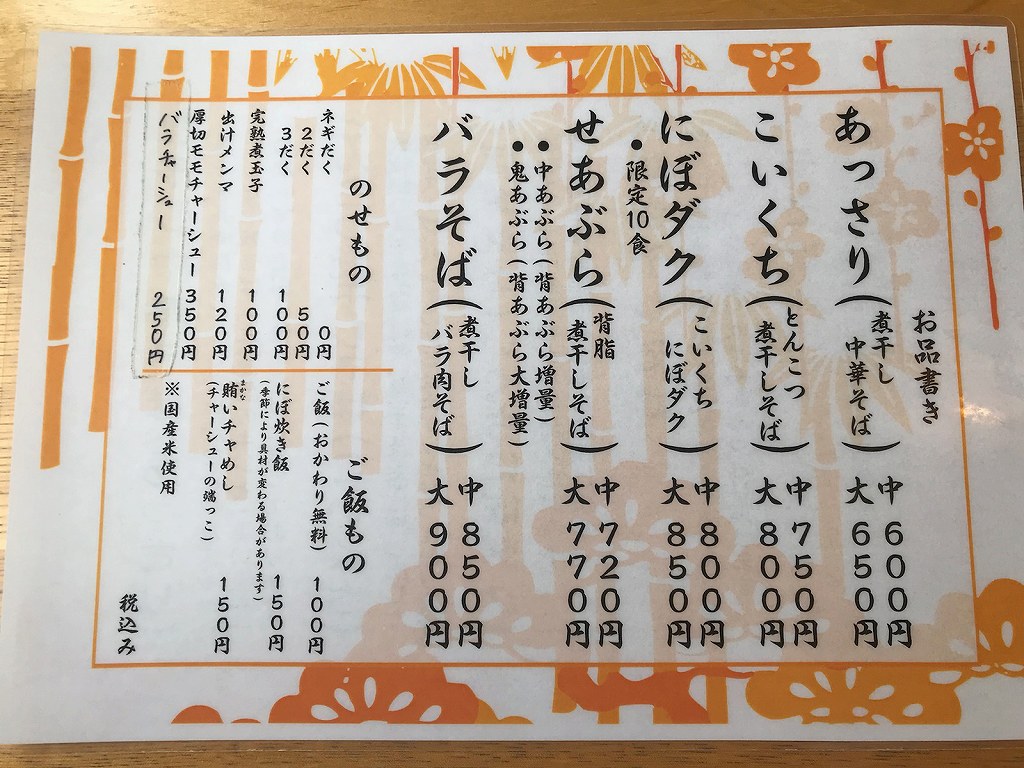 お品書き
あっさり(煮干し中華そば) 中 600円 大 650円
こいくち(とんこつ煮干しそば) 中 750円 大 800円
にぼダク(こいくちにぼダク) 中 800円 大 850円
●限定10食
せあぶら(背脂煮干しそば) 中 720円 大 770円
●中あぶら(背あぶら増量)
●鬼あぶら(背あぶら大増量)
バラそば(煮干しバラ肉そば) 中 850円 大 900円
のせもの
ネギだく 0円
2だく 50円
3だく 100円
完熟煮玉子 100円
出汁メンマ 120円
厚切モモチャーシュー 350円
バラチャーシュー 250円
ご飯もの
ご飯(おかわり無料) 100円
にぼ炊き飯 150円
(季節により具材が変わる場合があります)
賄いチャめし 150円
まかな
(チャーシューの端っこ)
※国産米使用
税込み